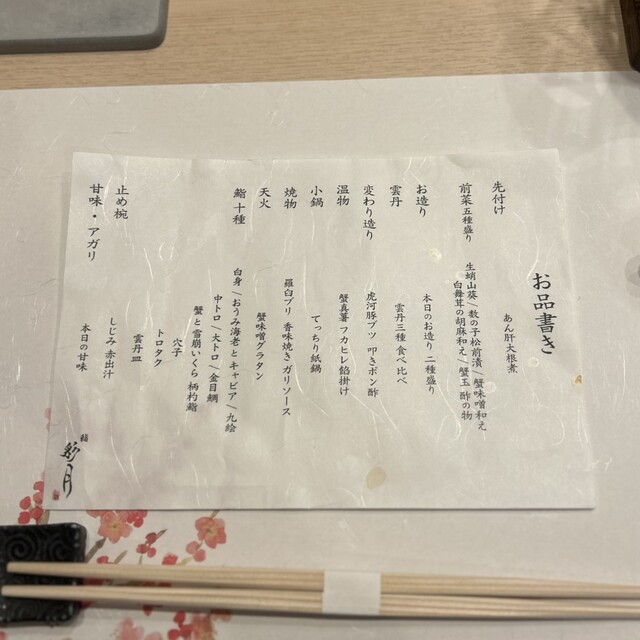 お品書き
先付け
あん肝大根煮
前菜五種盛り
生蛸山葵/数の子松前漬/蟹味噌和え
白舞茸の胡麻和え/蟹玉 酢の物
お造り
本日のお造り 二種盛り
雲丹
雲丹三種 食べ比べ
変わり造り
虎河豚ブツ 叩きポン酢
温物
蟹真薯 フカヒレ餡掛け
小鍋
てっちり紙鍋
焼物
羅臼ブリ 香味焼き ガリソース
天火
蟹味噌グラタン
鮨十種
白身/おうみ海老とキャビア/九絵
中トロ/大トロ/金目鯛
蟹と雪崩いくら 柄杓鮨
穴子
トロタク
雲丹皿
止め椀
しじみ 赤出汁
甘味・アガリ
本日の甘味